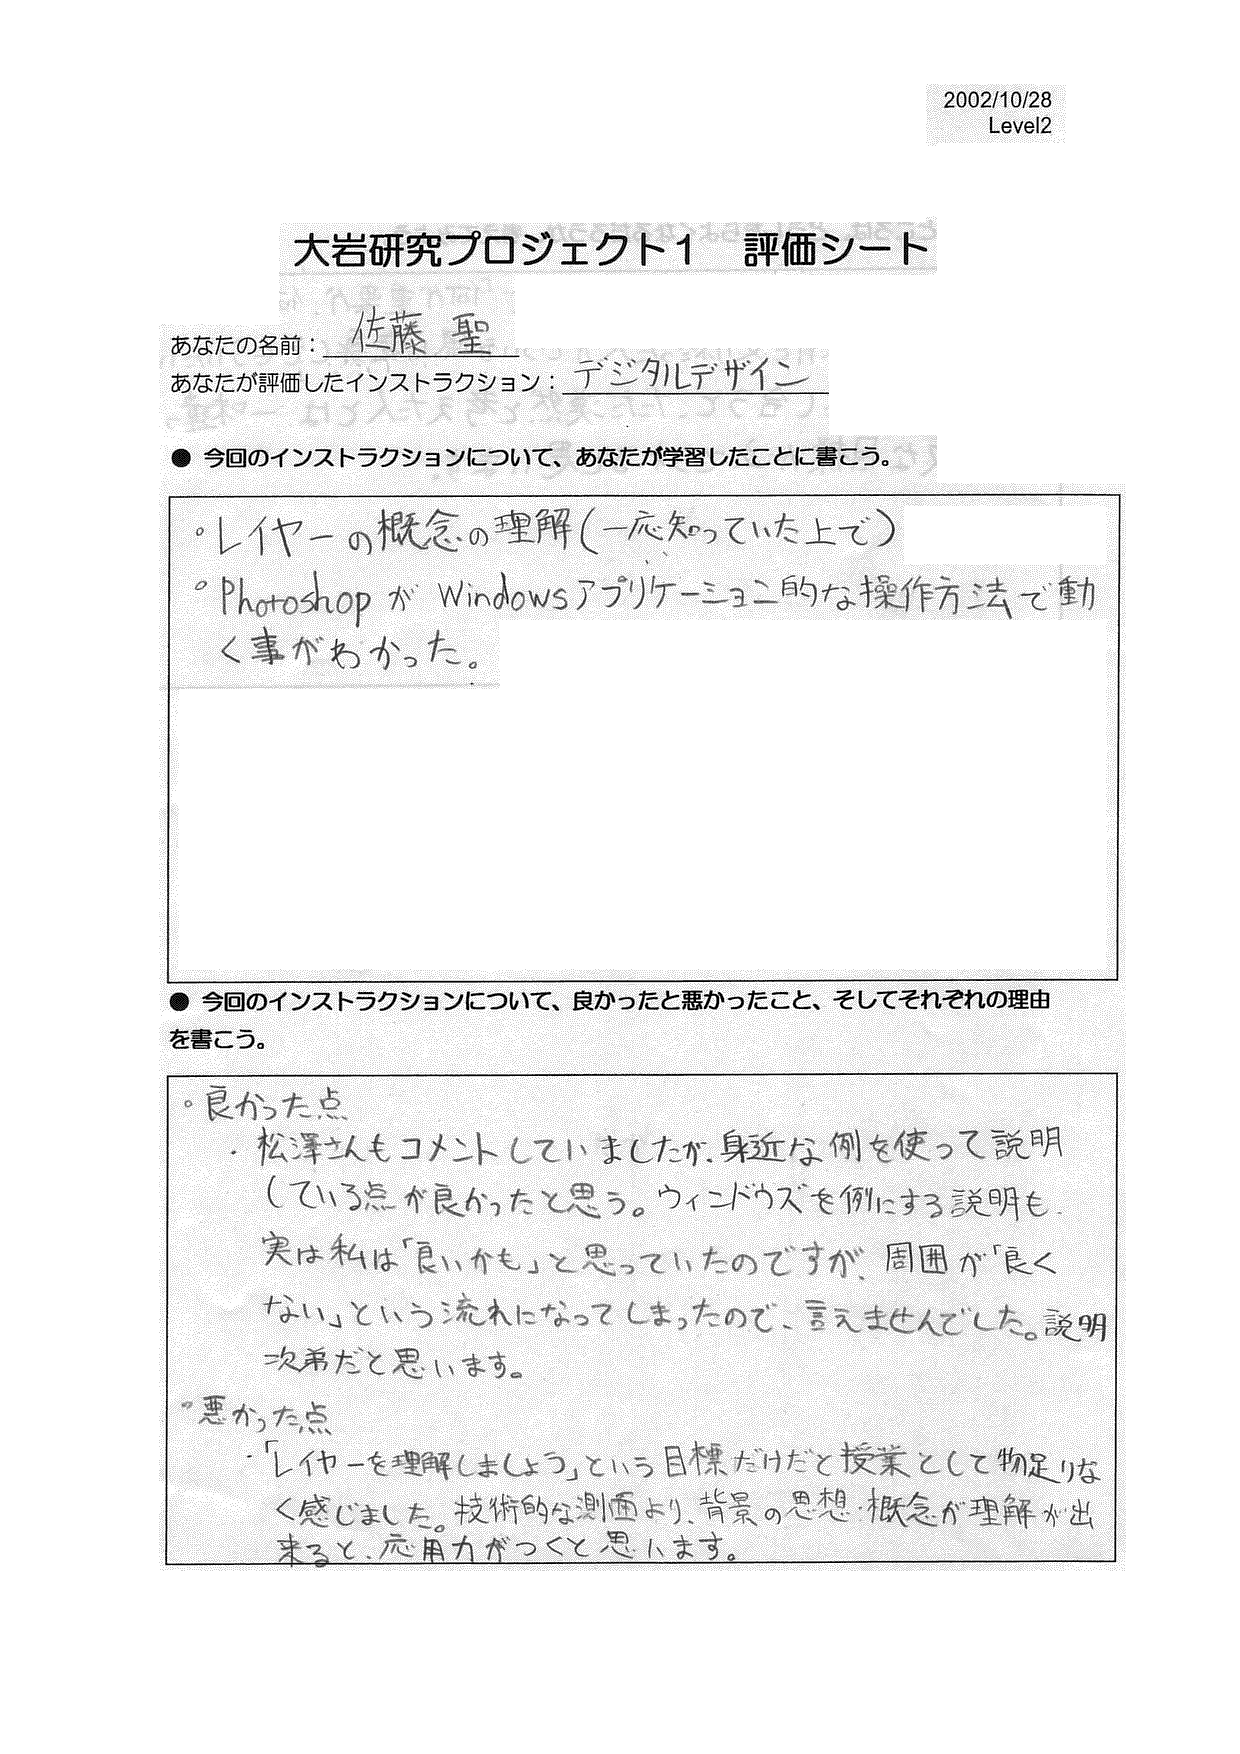 2002/10/28
Level2
大岩研究プロジェクト1　評価シート
あなたの名前：佐藤 聖
あなたが評価したインストラクション：デジタルデザイン
● 今回のインストラクションについて、あなたが学習したことに書こう。
。レイヤーの概念の理解(一応知っていた上で)
。PhotoshopがWindowsアプリケーション的な操作方法で動
く事がわかった。
● 今回のインストラクションについて、良かったと悪かったこと、そしてそれぞれの理由
を書こう。
。良かった点
・松澤さんもコメントしていましたが、身近な例を使って説明
している点が良かったと思う。ウィンドウズを例にする説明も、
実は私は「良いかも」と思っていたのですが、周囲が「良く
ない」という流れになってしまったので、言えませんでした。説明
次弟だと思います。
。悪かった点
・「レイヤーを理解しましょう」という目標だけだと授業として物足りな
く感じました。技術的な測面より、背景の思想・概念が理解が出
来ると、応用力がつくと思います。